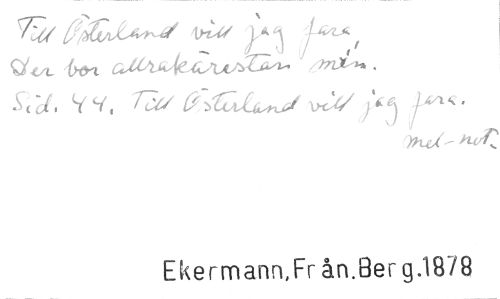 Till Österland vill jag fara,
Der bor allrakärestan min.
Sid. 44. Till Österland vill jag fara.
mel-not.
Ekermann,Från.Berg.1878